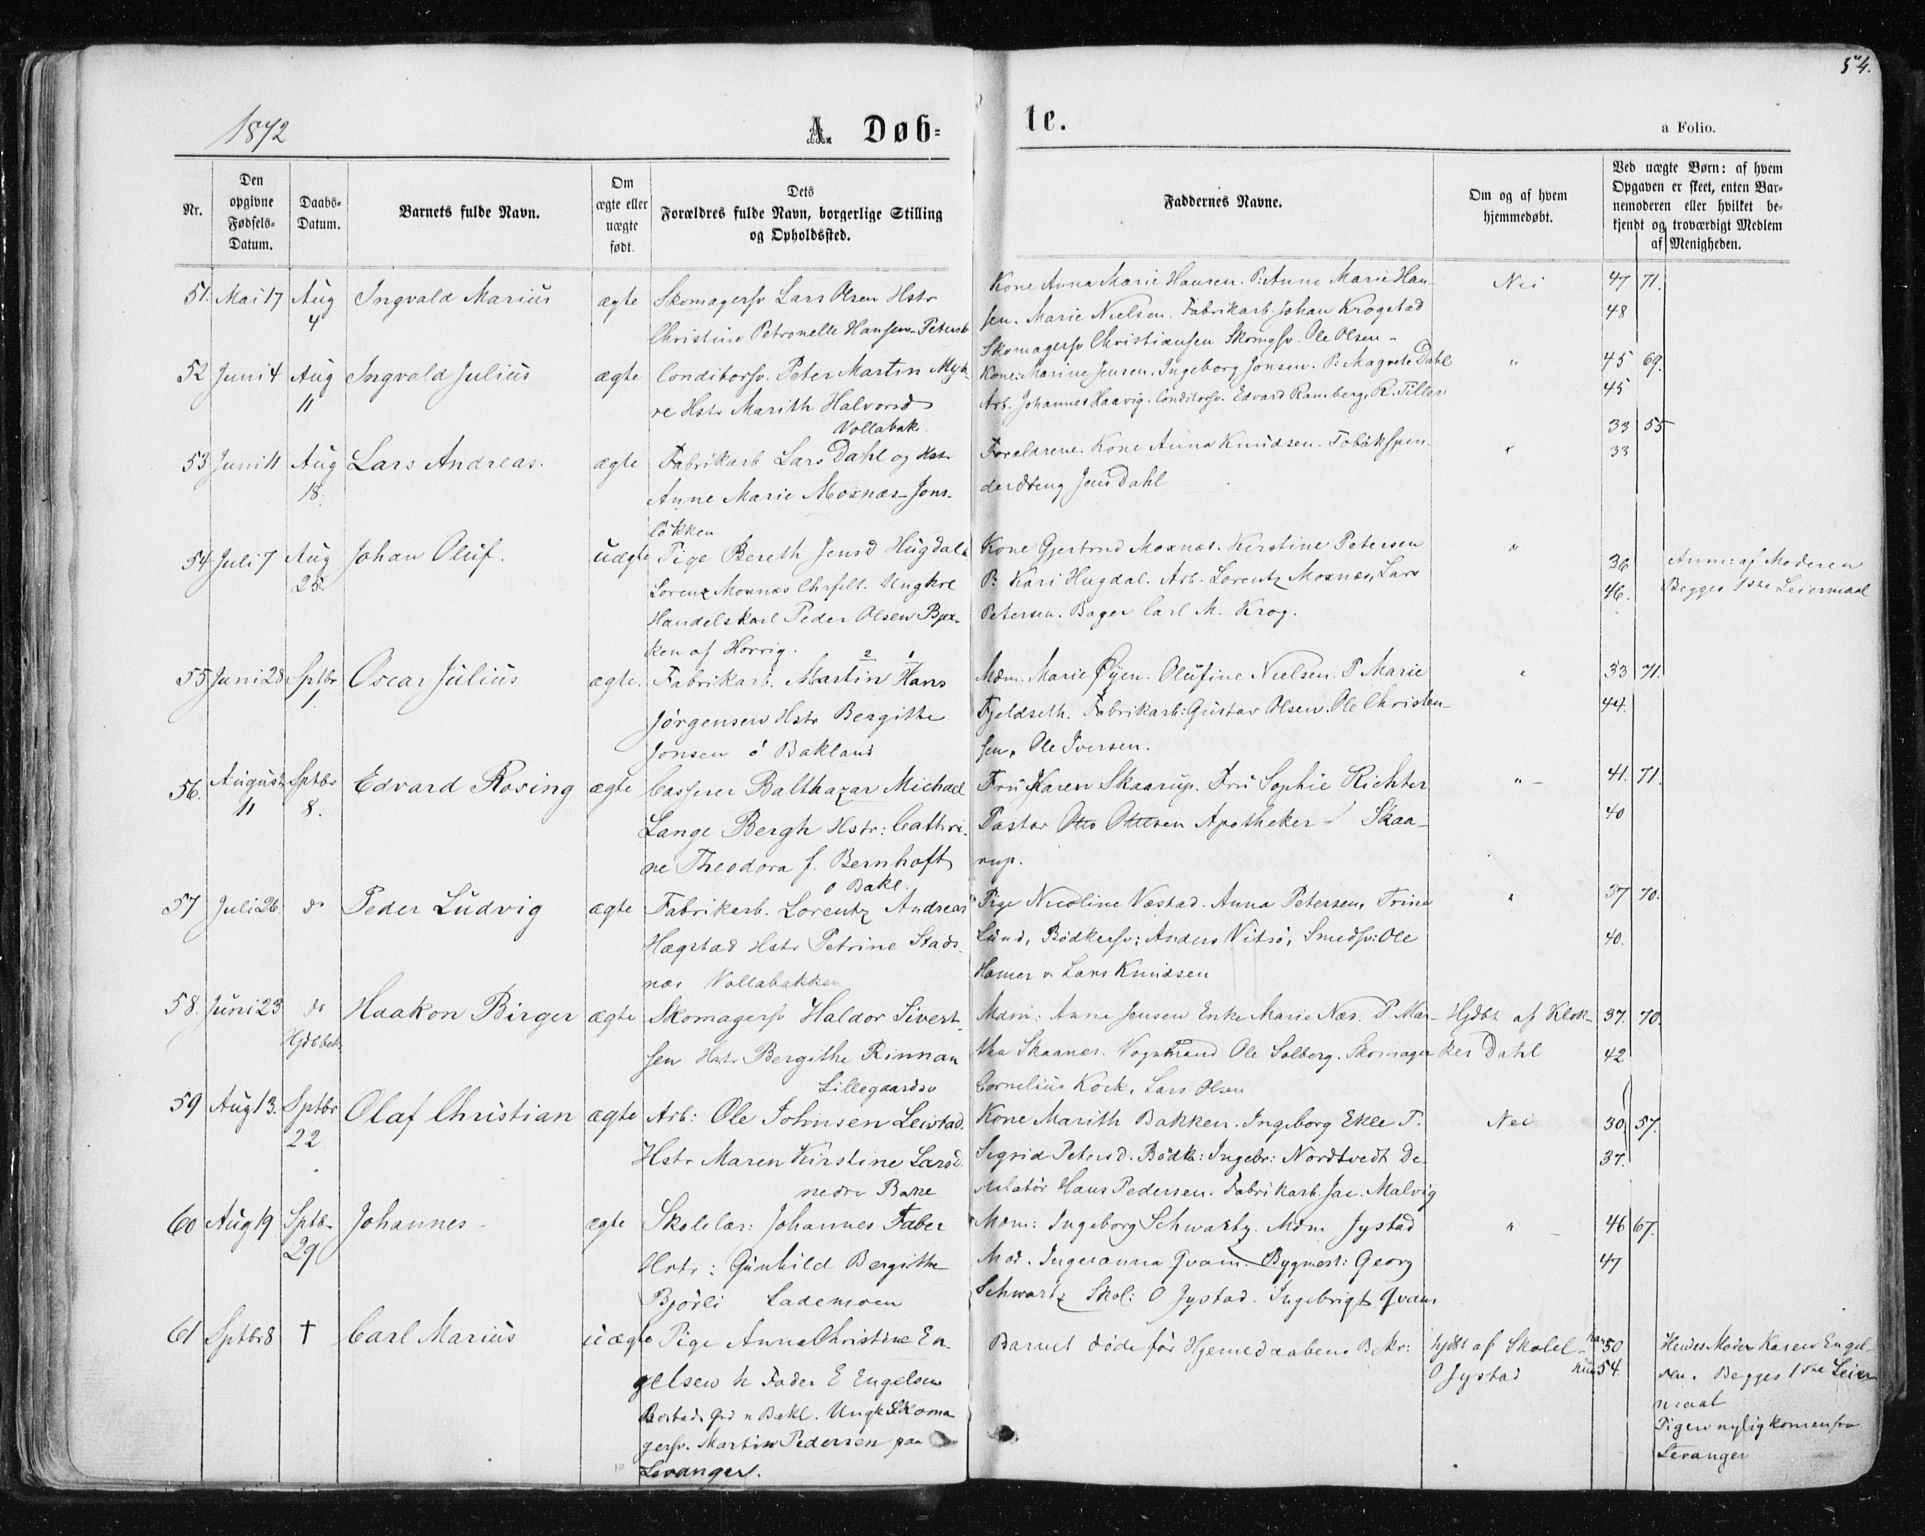 54.
1872
A. Døb=
te.
a Folio.
Nr.
Den opgivne Fødsels-Datum.
Daabs-Datum.
Barnets fulde Navn.
Om ægte eller uægte født.
Dets Forældres fulde Navn, borgerlige Stilling og Opholdssted.
Faddernes Navne.
Om og af hvem hjemmedøbt.
Ved uægte Børn: af hvem Opgaven er skeet, enten Barnemoderen eller hvilket bekjendt og troværdigt Medlem af Menigheden.
51. Mai 17 Aug 4 Ingvald Marius ægte Skomagersv Lars Olsen Hstr
Christine Petronelle Hansen - Petersb
Kone Anna Marie Hansen. P: Anne Marie Han-
sen. Marie Nielsen. Fabrikarb. Johan Krogstad
Skomagersv Christiansen Skomgsv. Ole Olsen -
Nei 47 71.
48
52 Juni 4 Aug 11 Ingvald Julius ægte Conditorsv. Peter Martin Myh-
re Hstr Marith Halvorsd
Vollabak.
Kone: Marine Jensen. Ingeborg Jonsen. P: Magrete Dahl
Arb. Johannes Haavig. Conditorsv. Edvard Ramberg, R. Tiller
" 45 69.
45
53 Juni 11 Aug 18. Lars Andreas. ægte Fabrikarb Lars Dahl og Hstr
Anne Marie Moxnæs - Jons-
løkken
Forældrene. Kone Anna Knudsen. Tobakspin-
derdreng Jens Dahl
" 33 55
33
54 Juli 7 Aug 25. Johan Oluf. uægte Pige Bereth Jensd Hugdal
Lorenz Moxnæs Ungkrl
Handelskarl Peder Olsen
ken af Horrig.
Kone Gjertrud Moxnæs. Kirstine Petersen
P. Kari Hugdal. Arb. Lorentz Moxnæs, Lars
Petersen. Bager Carl M. Krog.
" 36
46.
Anm: af Moderen
Begges 1ste Leiermaal
55 Juni 28 Sptbr 1. Oscar Julius ægte. Fabrikarb. Martin 2 Hans 1
Jørgensen Hstr Bergithe
Jonsen ö Bakland
Mdm. Marie Øyen. Olufine Nielsen. P Marie
Fjeldseth. Fabrikarb: Gustav Olsen. Ole Christen-
sen, Ole Iversen.
" 33 71.
44.
56. August 11 Sptbr 8. Edvard Rosing ægte Casserer Balthazar Michael
Lange Bergh Hstr: Cathri-
ne Theodora f. Bernhoft
ö Bakl.
Fru Karen Skaarup. Fru Sophie Richter
Pastor Otto Ottesen Apotheker Skaa-
rup.
" - 41. 71.
40
57 Juli 26 do Peder Ludvig ægte Fabrikarb. Lorentz Andreas
Hagstad Hstr Petrine Stads
næs Vollabakken
Pige Nicoline Væstad. Anna Petersen, Trine
Lund, Bødkersv: Anders Vitsö, Smedsv: Ole
Hamer o Lars Knudsen
" 37 70.
40.
58. Juni 23 do Hjdbbek. Haakon Birger ægte Skomagersv Haldor Sivert-
sen Hstr Bergithe Rinnan
Lillegaardsv
Mdm: Anne Jensen Enke Marie Næs. P. Mar-
tha Skaanes. Vognmand Ole Solberg. Skomager
Cornelius Kock, Lars Olsen
Hjdbt af Klok-
ker Dahl
37. 70.
42
59 Aug 13. Sptbr 22 Olaf Christian ægte Arb: Ole Johnsen Leistad.
Hstr Maren Kirstine Larsd.
nedre Bakl
Kone Marith Bakken. Ingeborg Ekle P.
Sigrid Petersd. Bødk: Ingebr: Nordtvedt De-
stilatör Hans Pedersen. Fabrikarb. Jac. Malvig
Nei 30 57.
37.
60 Aug 19 Sptbr 29 Johannes - ægte Skolelær: Johannes Faber
Hstr: Gunhild Bergithe
Bjørli Lademoen
Mdm: Ingeborg Schwartz. Mdm Jystad
Mad. Ingeranna Qvam. Bygmest: Georg
Schwartz Skol: O Jystad. Ingebrigt Qvam
" 46 67.
47
61 Sptbr 8 † Carl Marius uægte Pige Anna Christine En-
gelsen h Fader E Engelsen
Bakl. Ungk Skoma
gersv. Martin Pedersen paa
Levanger.
Barnet døde før Hjemedaabens Bekr:
hjdbt af Skolel.
O Jystad
han 50
hun 54.
Hendes Moder Karen Engel
sen. Begges 1ste Leier
maal
Pigen nylig kommen fra
Levanger